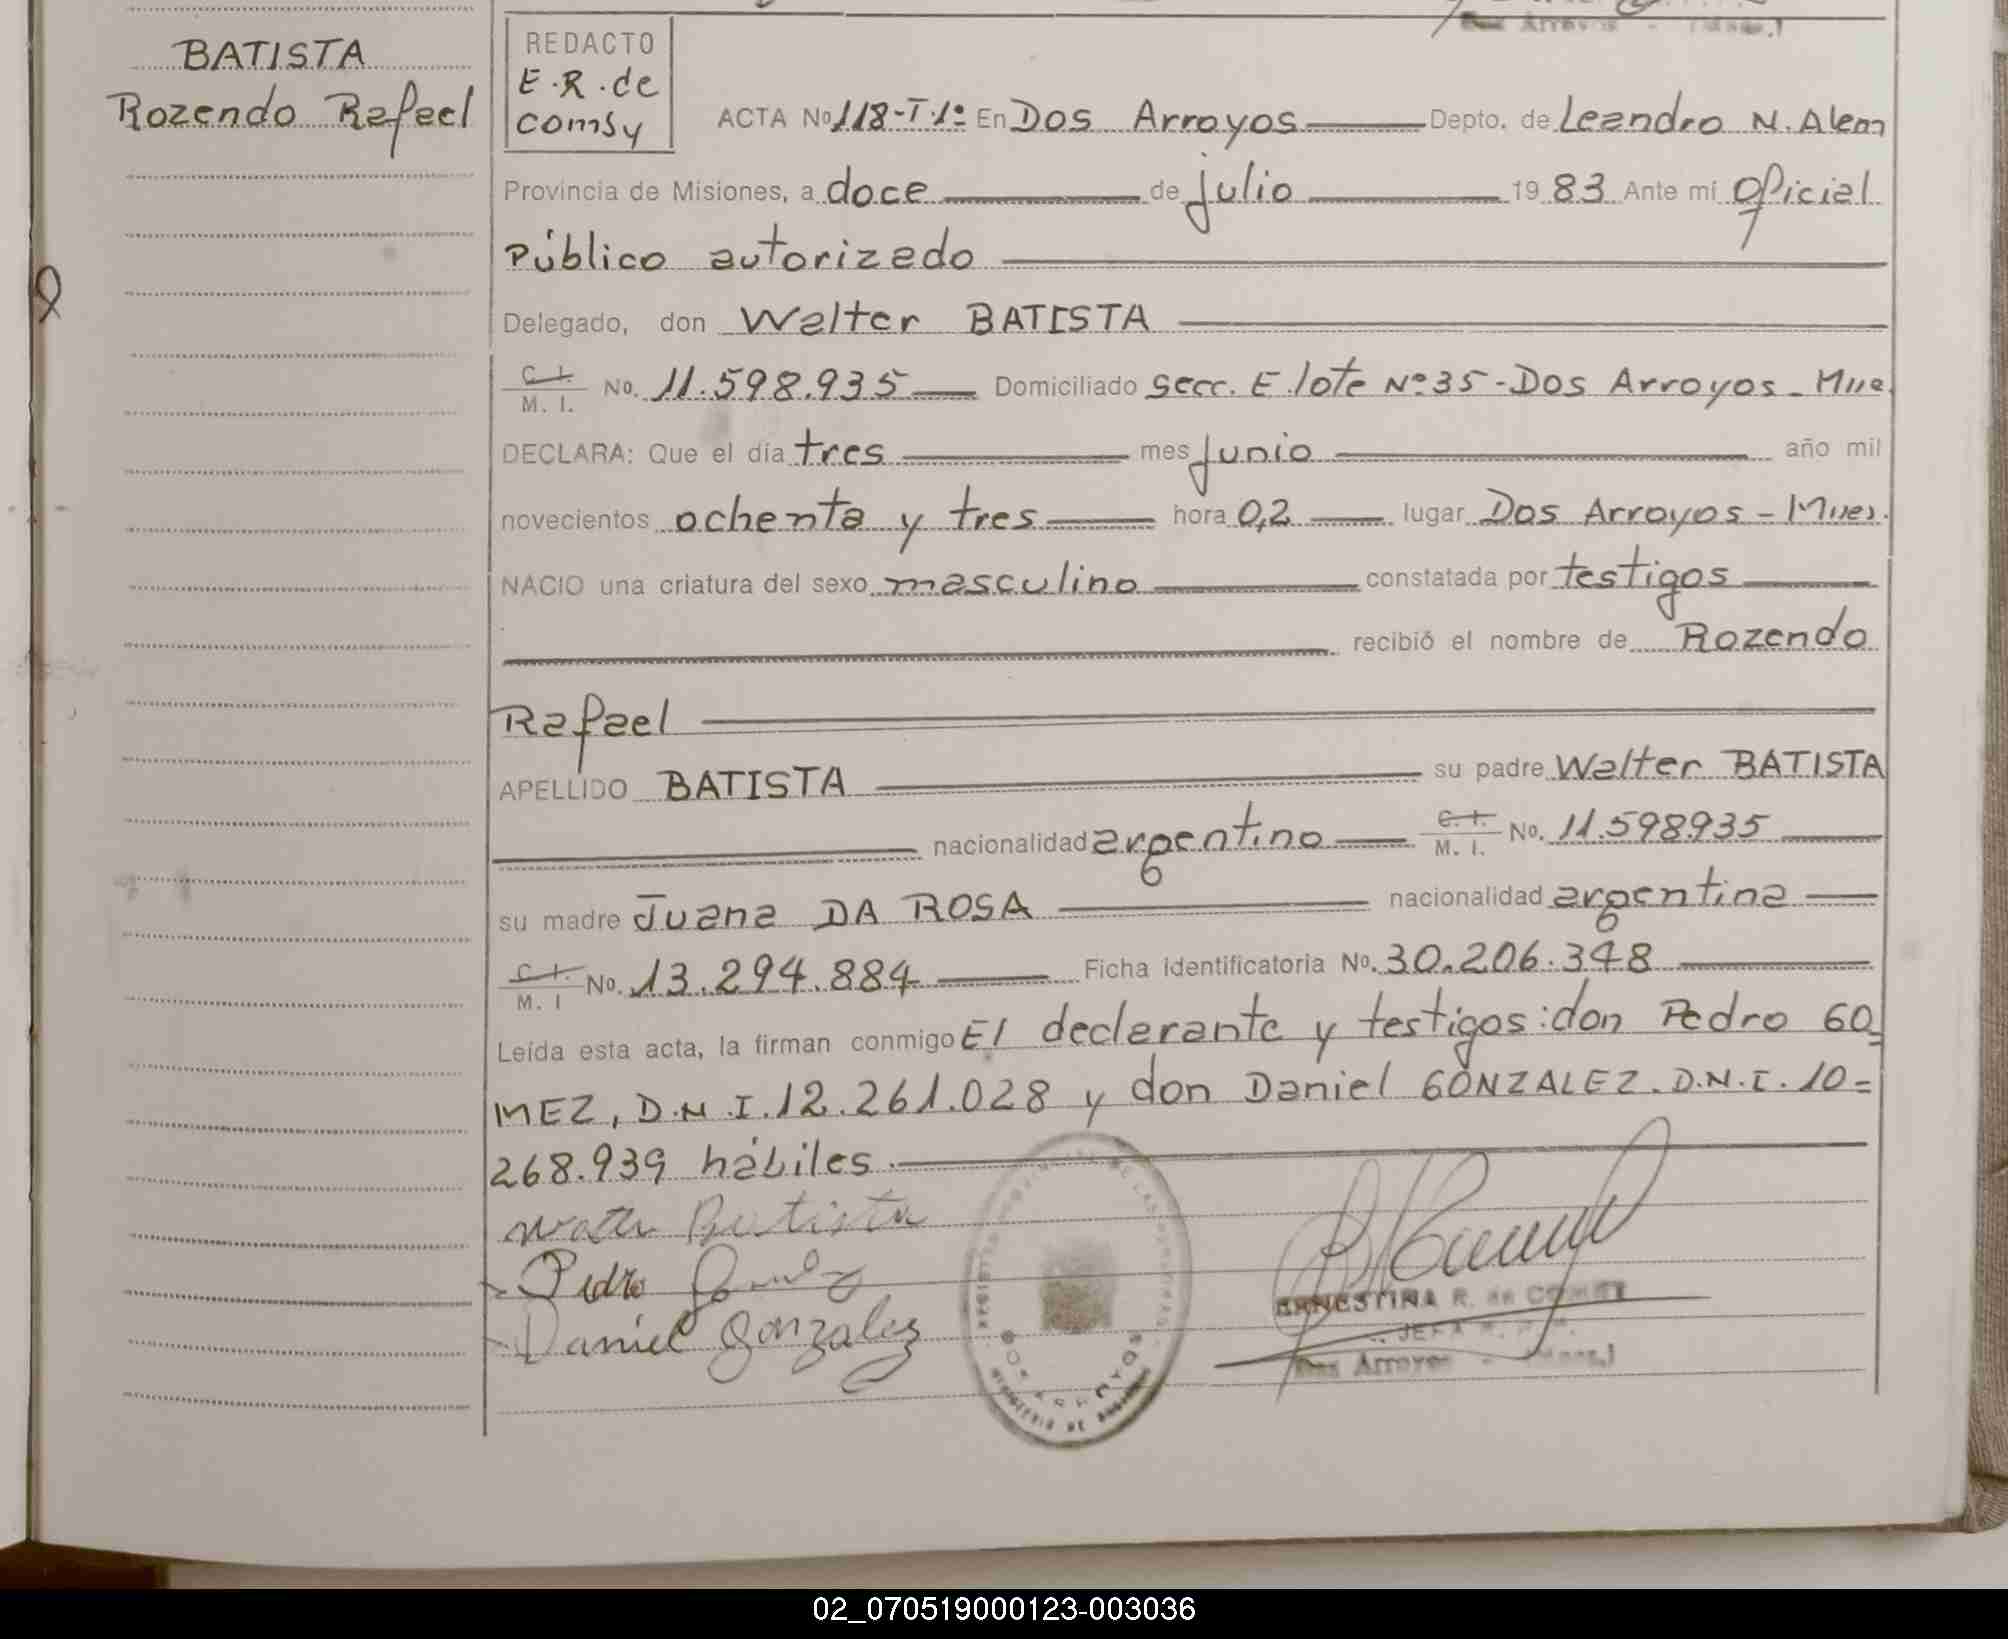 Dos Arroyos - (Mnes.)
BATISTA
Rozendo Rafael
REDACTO
E.R. de
comsy
ACTA No 118-T.1º En Dos Arroyos Depto. de Leandro N. Alem
Provincia de Misiones, a doce de julio 19 83 Ante mí Oficial
Público autorizado
Delegado, don Walter BATISTA
C. I.
M. I. No. 11.598.935 Domiciliado Secc. E lote Nº 35 - Dos Arroyos - Mnes
DECLARA: Que el día tres mes junio año mil
novecientos ochenta y tres hora 0,2 lugar Dos Arroyos - Mnes.
NACIO una criatura del sexo masculino constatada por testigos
recibió el nombre de Rozendo
Rafael
APELLIDO BATISTA su padre Walter BATISTA
nacionalidad argentino C. I. M. I. No. 11.598935
su madre Juana DA ROSA nacionalidad argentina
C. I.
M. I No. 13.294.884 Ficha identificatoria No. 30.206.348
Leída esta acta, la firman conmigo El declarante y testigos: don Pedro GO-
MEZ, D.N.I. 12.261.028 y don Daniel GONZALEZ. D.N.I. 10=
268.939 hábiles.
Walter Batista
Pedro
Daniel Gonzalez
DOS ARROYOS
ERNESTINA R. de
JEFA
Dos Arroyos - (Mnes.)
02_070519000123-003036